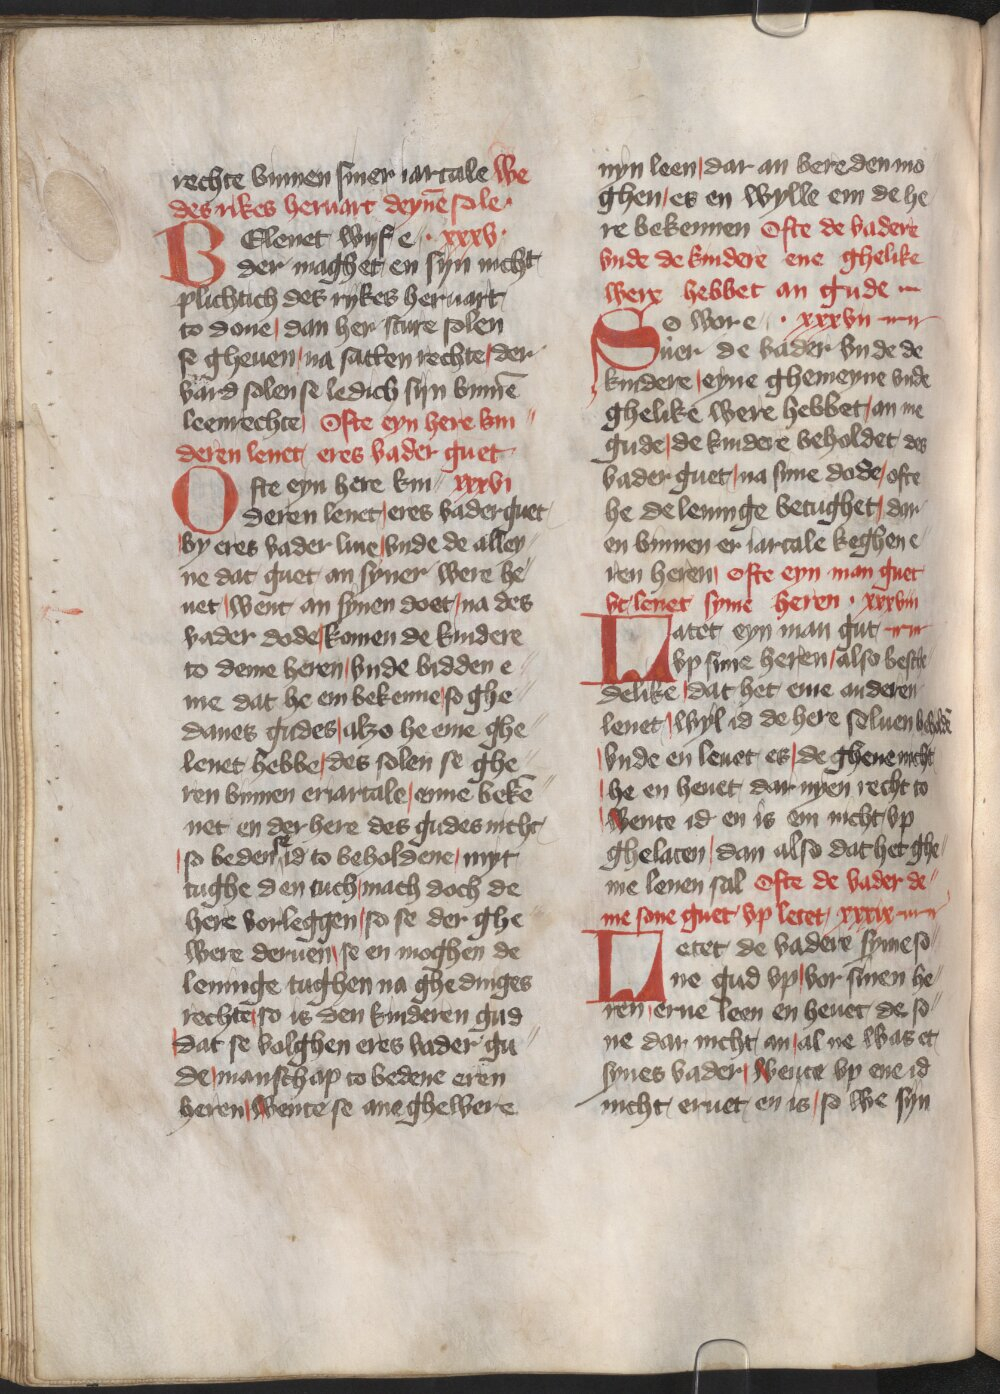 rechte binnen siner iartale We
des rikes heruart deynē sole·
BElenet wyf e · xxxv·
der maghet en syn nicht
plichtich des rykes heruart
to done dan her sture solen
se gheuen na satten rechte der
vard solen se ledich syn binnē
leenrechte Ofte eyn here kin
deren lenet eres vader guet
Ofte eyn here kin xxxvi
deren lenet eres vader guet
by eres vader liue vnde de alley
ne dat guet an syner were he
uet went an synen doet na des
vader dode komen de kindere
to deme heren vnde bidden e
me dat he em bekenne so ghe
danes gudes alzo he eme ghe
lenet hebbe des solen se ghe
ren binnen er iartale enne bekē
net en der here des gudes nicht
so beden se id to beholdene myt
tughe den tuch mach doch de
here vorleggen so se der ghe
were deruen se en moghen de
leninge tughen na ghedinges
rechte so is den kinderen gud
dat se volghen eres vader gu
de manschap to bedene eren
heren wente se ane ghewere
nyn leen dar an bereden mo
ghen es en wylle em de he
re bekennen Ofte de vadere
vnde de kindere ene ghelike
were hebbet an gude
So wor e · xxxvii
suer de vader vnde de
kindere eyne ghemeyne vnde
ghelike were hebbet an me
gude de kindere beholdet des
vader guet na sime dode ofte
he de leninge betughet dar
en binnen er iartale keghen e
ren heren Ofte eyn man guet
vt lenet syme heren · xxxviii
Latet eyn man gut
vp sime heren also besche
delike dat het eme anderen
lenet wyl id de here seluen beholdē
vnde en lenet es de ghene nicht
he en heuet dar nyen recht to
wente id en is em nicht vp
ghelaten dan also dat het ghe
me lenen sal Ofte de vader de
me sone guet vp letet xxxix
Letet de vadere syme so
ne gud vp vor sinen he
ren erue leen en heuet de so
ne dar nicht an al ne was et
synes vader wente vp ene id
nicht eruet en is so we syn